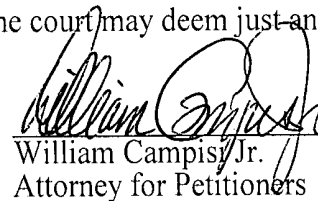 he court may deem just an
William Campisi Jr.
William Campisi, Jr.
Attorney for Petitioners